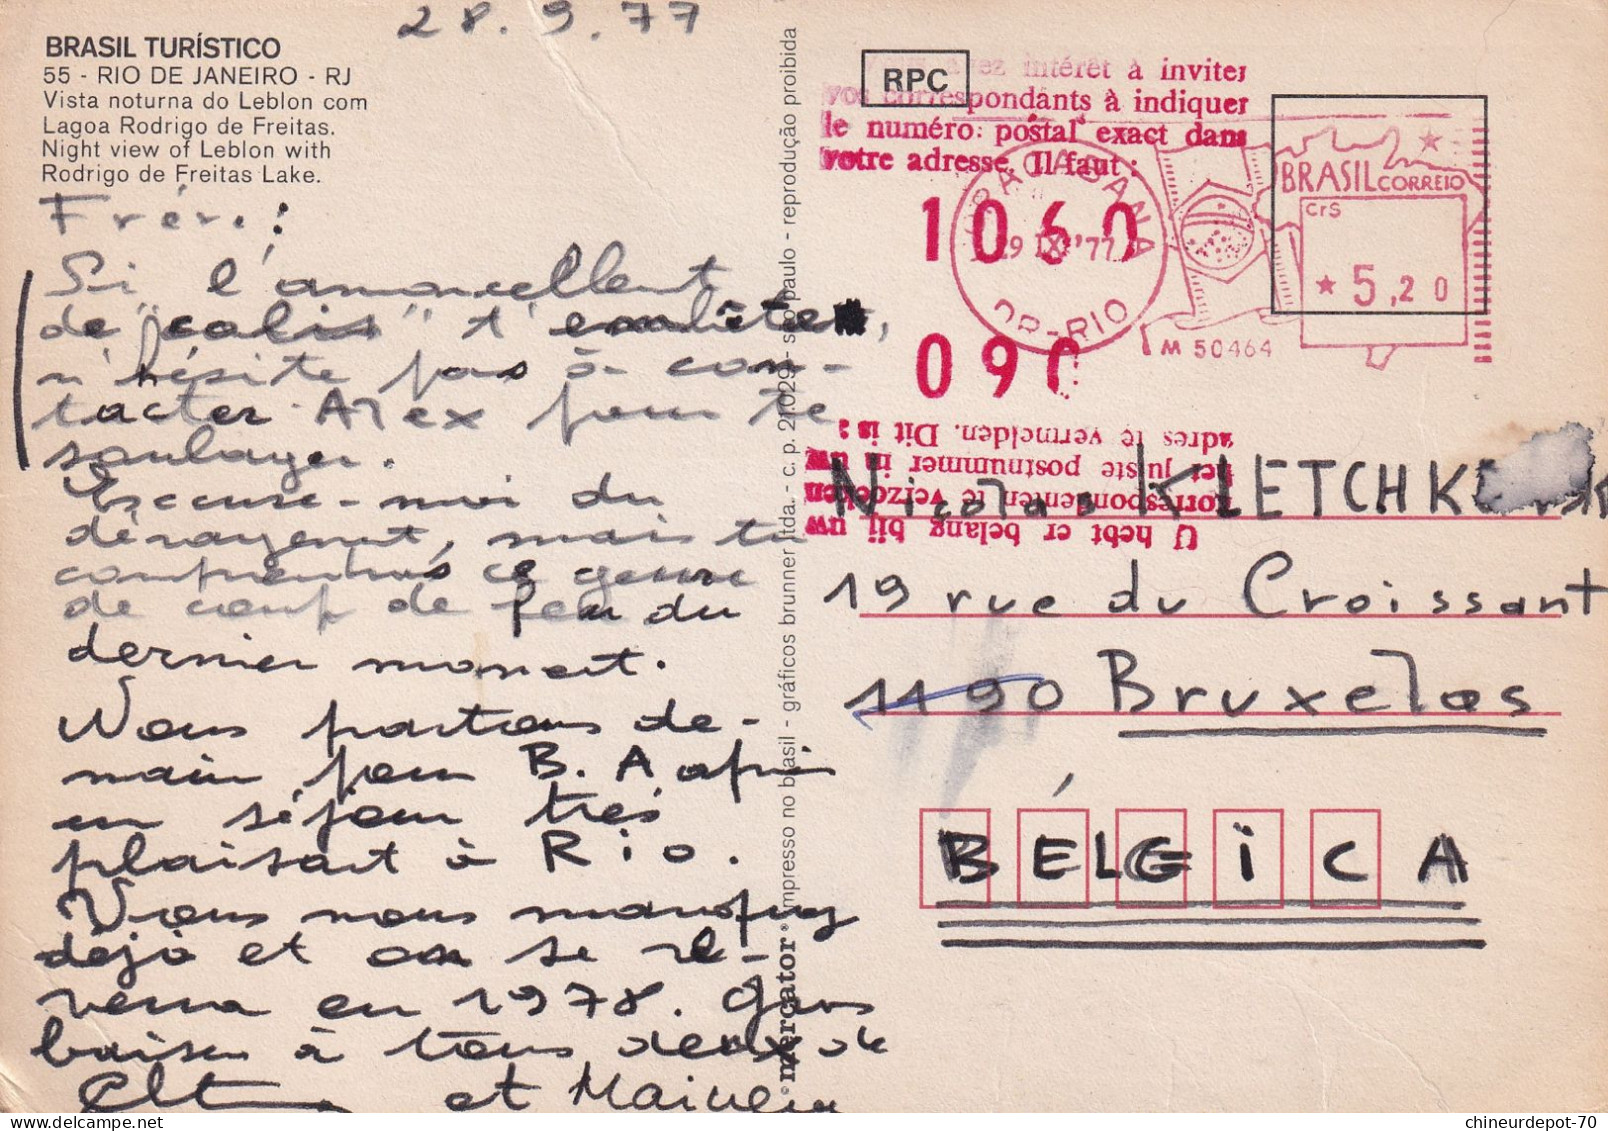 28.9.77
BRASIL TURÍSTICO
55 - RIO DE JANEIRO - RJ
Vista noturna do Leblon com
Lagoa Rodrigo de Freitas.
Night view of Leblon with
Rodrigo de Freitas Lake.
Si l'amoncellent
de "colis" t'embête,
n'hésite pas à con-
tacter Alex pour te
soulager.
Excuse-moi du
dérangement, mais tu
comprendras ce genre
de coup de feu du
dernier moment.
Nous partons de-
main pour B. A après
un séjour très
plaisant à Rio.
Vous nous manquez
dejà et on se re-
verra en 1978. Gros
baisers à tous deux de
et
impresso no brasil - gráficos brunner ltda. - c. p. 21.029 - são paulo - reprodução proibida
mercator
RPC
ez intérêt à inviter
vos correspondants à indiquer
le numéro postal exact dans
votre adresse. Il faut :
1060
090
U hebt er belang bij uw
korrespondenten te verzoeken
het juiste postnummer in uw
adres te vermelden. Dit is :
COPACABANA
29 IX '77
DR-RIO
BRASIL CORREIO
Cr$
★ 5,20
M 50464
Nicolas KLETCHK
19 rue du Croissant
1190 Bruxelas
BÉLGICA
chineurdepot-70